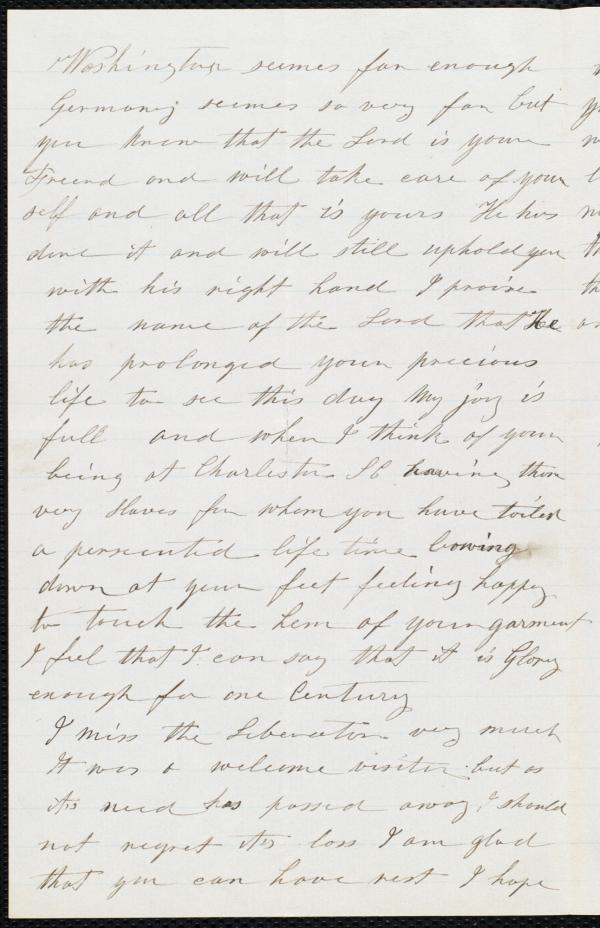 Washington seemes far enough
Germany seemes so very far but
you know that the Lord is your
Freend and will take care of your
self and all that is yours He has
done it and will still uphold you
with his right hand I praise
the name of the Lord that He
has prolonged your precious
life to see this day My joy is
full and when I think of your
being at Charleston S C having those
very Slaves for whom you have toiled
a persecuted life time bowing
down at your feet feeling happy
to touch the hem of your garment
I feel that I can say that it is Glory
enough for one Century
I miss the Liberator very much
It was a welcome visitor but as
its need has passed away I should
not regret its loss I am glad
that you can have rest I hope